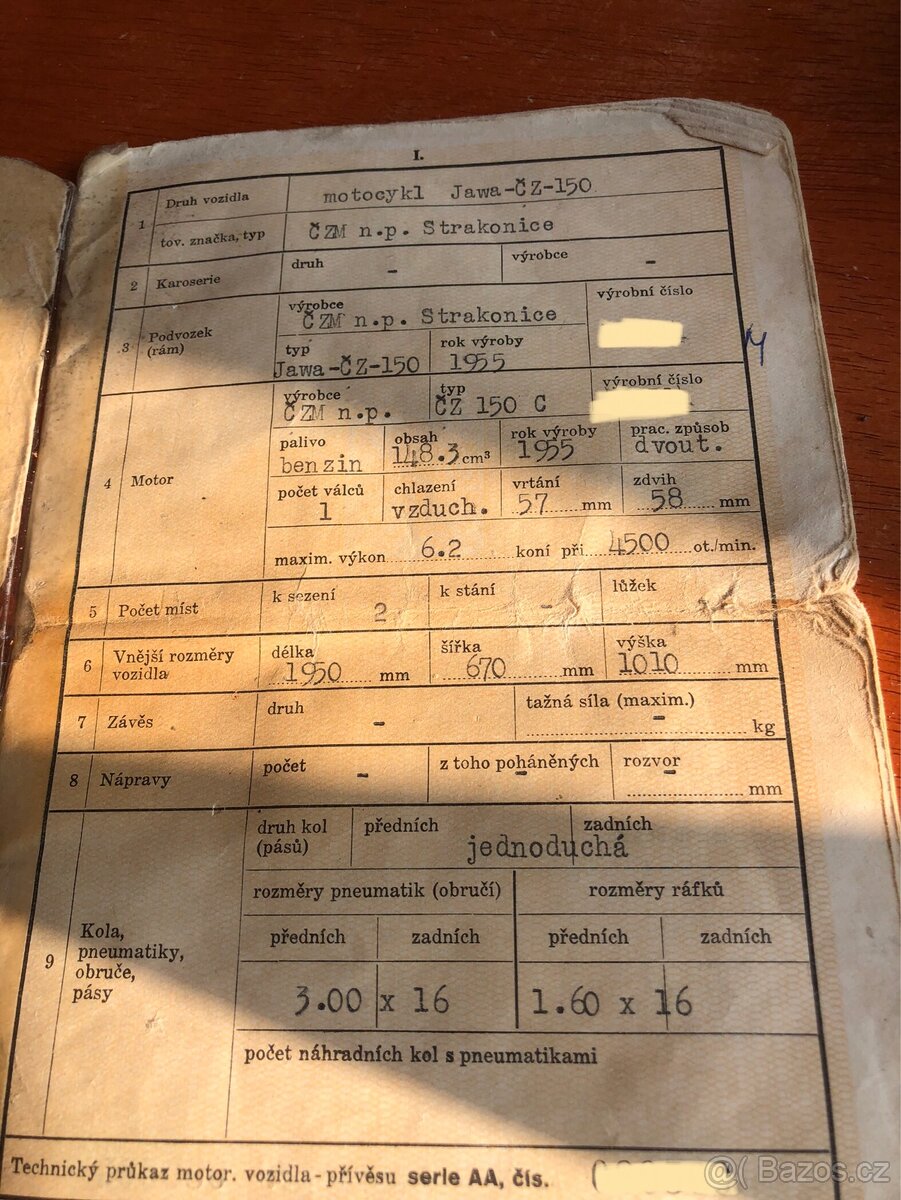 I.
1 Druh vozidla motocykl Jawa-ČZ-150
tov. značka, typ ČZM n.p. Strakonice
2 Karoserie druh - výrobce -
3 Podvozek (rám) výrobce ČZM n.p. Strakonice výrobní číslo
typ Jawa-ČZ-150 rok výroby 1955
4 Motor výrobce ČZM n.p. typ ČZ 150 C výrobní číslo
palivo benzin obsah 148.3 cm³ rok výroby 1955 prac. způsob dvout.
počet válců 1 chlazení vzduch. vrtání 57 mm zdvih 58 mm
maxim. výkon 6.2 koní při 4500 ot./min.
5 Počet míst k sezení 2 k stání - lůžek
6 Vnější rozměry vozidla délka 1950 mm šířka 670 mm výška 1010 mm
7 Závěs druh - tažná síla (maxim.) - kg
8 Nápravy počet - z toho poháněných - rozvor - mm
9 Kola, pneumatiky, obruče, pásy
druh kol (pásů) předních zadních
jednoduchá
rozměry pneumatik (obručí) rozměry ráfků
předních zadních předních zadních
3.00 x 16 1.60 x 16
počet náhradních kol s pneumatikami
Technický průkaz motor. vozidla - přívěsu serie AA, čís.
@( Bazos.cz